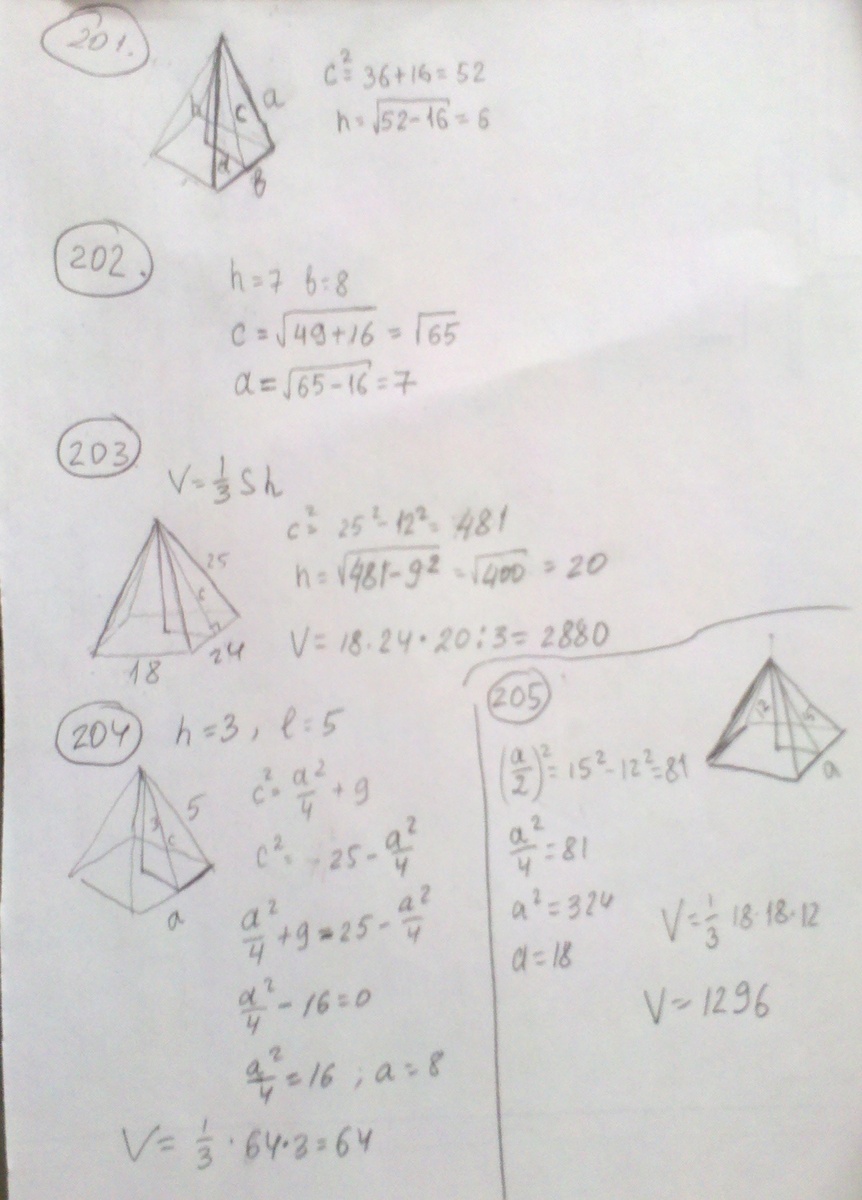 201.
h c a d b
c² = 36+16 = 52
h = √52-16 = 6
202.
h=7 b=8
c = √49+16 = √65
d = √65-16 = 7
203
V = 1/3 Sh
25
c
18
24
c² = 25² - 12² = 481
h = √481-9² = √400 = 20
V = 18·24·20:3 = 2880
204
h = 3, l = 5
5
3 c
a
c² = a²/4 + 9
c² = 25 - a²/4
a²/4 + 9 = 25 - a²/4
a²/4 - 16 = 0
a²/4 = 16 ; a = 8
V = 1/3 · 64·3 = 64
205
12
a
(a/2)² = 15² - 12² = 81
a²/4 = 81
a² = 324
a = 18
V = 1/3 18·18·12
V = 1296